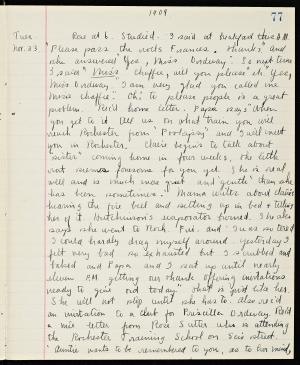 1909
77
Tues Rose at 6. Studied. I said at breakfast this A.M.
Nov. 23 "Please pass the rocks Frances. Thanks," and
she answered "Yes, Miss Ordway." So next time
I said "Miss" Chaffee, will you please" etc. "Yes,
Miss Ordway. I am very glad you called me
Miss Chaffee." Oh! to please people is a great
problem. Rec'd home letter. Papa says "When
you get to it tell us on what train you will
reach Rochester from and I will meet
you in Rochester. Claire begins to talk about
'sister' coming home in four weeks. The little
seems lonesome for you yet. She is real
well and is much more quiet and gentle" than she
has been sometimes. Mama writes about Claire's
hearing the fire bell and setting up in bed & telling
her of it. Hutchinson's evaporator burned. She also
says she went to Roch. Fri. and "I was so tired
I could hardly drag myself around. Yesterday I
felt very bad so exhausted but I scrubbed and
baked and Papa and I sat up until nearly
eleven P.M. getting our thank offering invitations
ready to give out today." That is just like her.
She will not stop until she has to. Also rec'd
an invitation to a club for Priscilla Ordway. Rec'd
a nice letter from Rose Sutter who is attending
the Rochester Training School on Scio street.
"Auntie wants to be remembered to you, as to her mind,